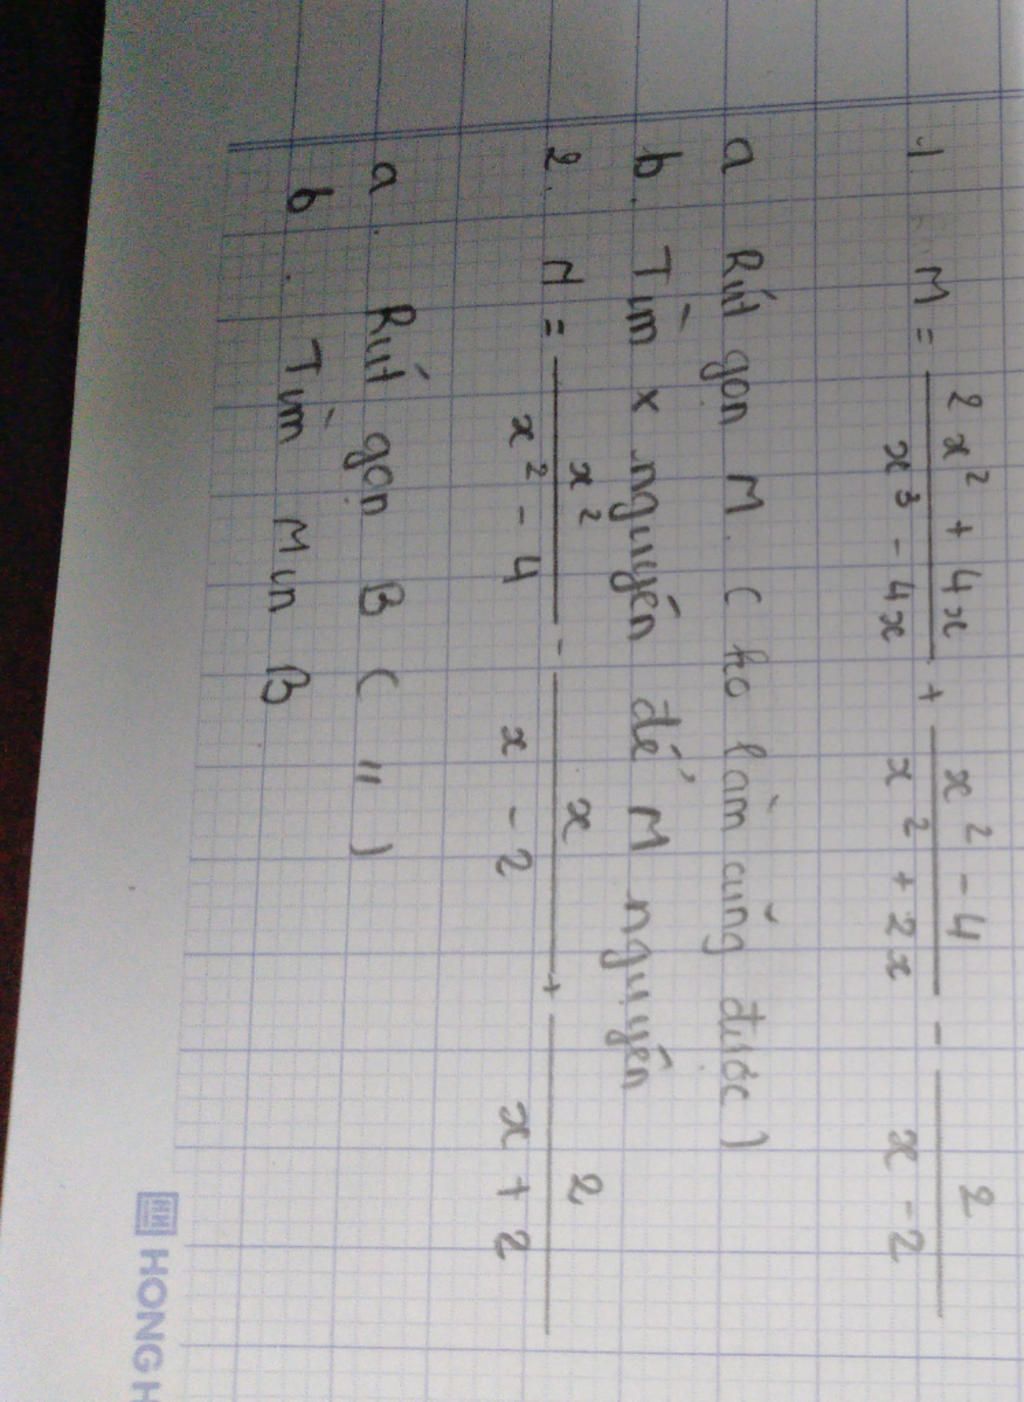 1. M = (2x² + 4x)/(x³ - 4x) + (x² - 4)/(x² + 2x) - 2/(x - 2)
a Rút gọn M. ( ko làm cũng được )
b. Tìm x nguyên để M nguyên
2. N = x²/(x² - 4) - x/(x - 2) + 2/(x + 2)
a. Rút gọn B ( " )
b. Tìm Min B
HH HONG H